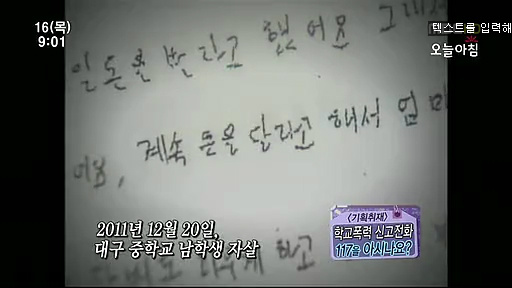 16(목)
9:01
텍스트를 입력해
오늘아침
일 돈을 벌라고 했어요 그래서
계속 돈을 달라고 해서 엄마
2011년 12월 20일,
대구 중학교 남학생 자살
<기획취재>
학교폭력 신고전화
117을 아시나요?